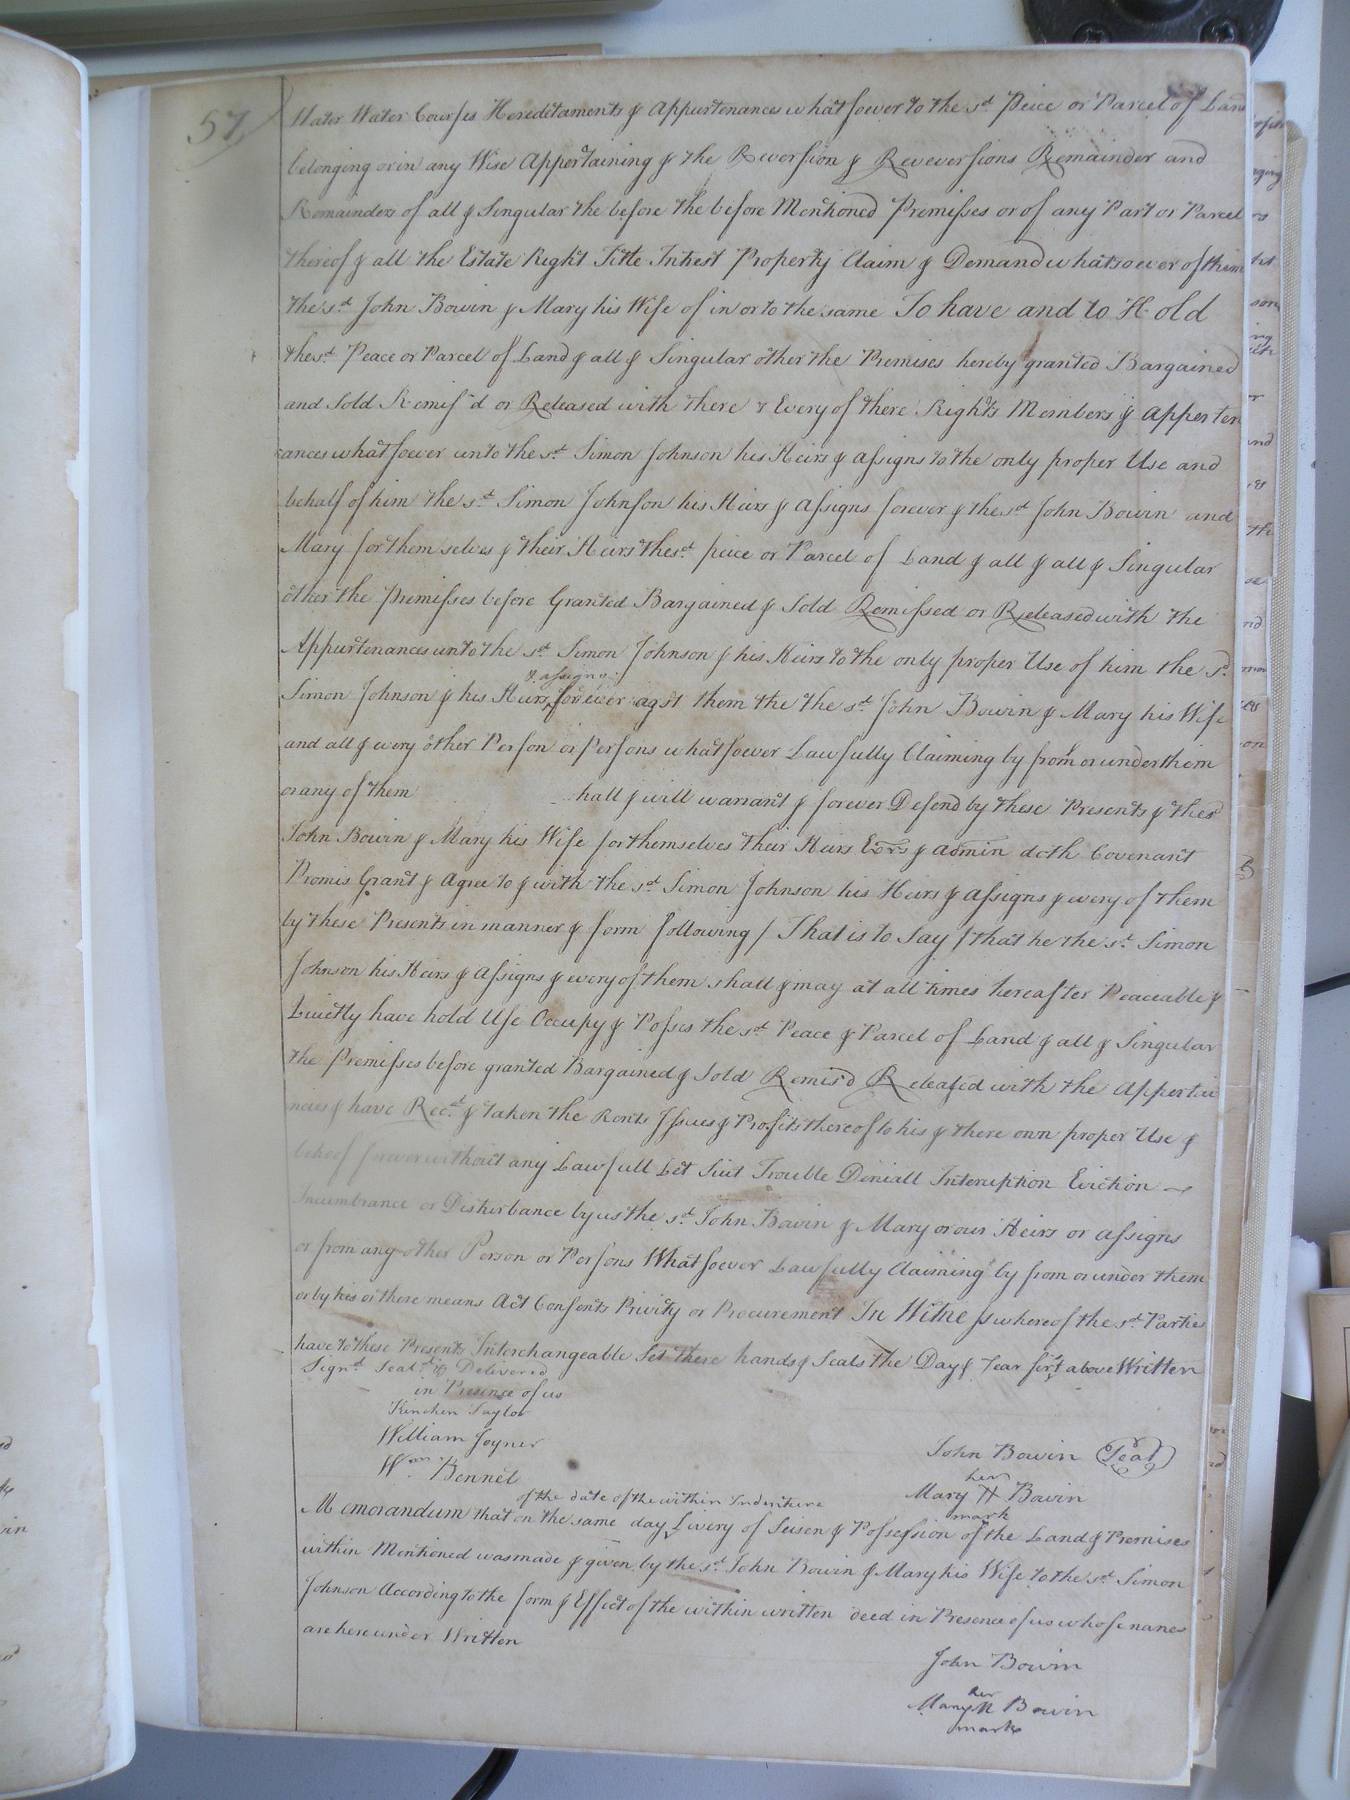 57
Water Water Courses Hereditaments & Appurtenances whatsoever to the sd Peice or Parcel of Land
belonging or in any Wise Appertaining & the Reversion & Reversions Remainder and
Remainders of all & Singular the before the before Mentioned Premisses or of any Part or Parcel
thereof & all the Estate Right Title Intrest Property Claim & Demand whatsoever of them
the sd John Bowin & Mary his Wife of in or to the same To have and to Hold
the sd Peace or Parcel of Land & all & Singular other the Premises hereby granted Bargained
and Sold Remis'd or Released with there & Every of there Rights Members & Apperten
ances whatsoever unto the sd Simon Johnson his Heirs & assigns to the only proper Use and
behalf of him the sd Simon Johnson his Heirs & Assigns forever & the sd John Bowin and
Mary for them selves & their Heirs the sd peice or Parcel of Land & all & all & Singular
other the Premisses before Granted Bargained & Sold Remissed or Released with the
Appurtenances unto the sd Simon Johnson & his Heirs to the only proper Use of him the sd
& assigns
Simon Johnson & his Heirs forever agst them the the sd John Bowin & Mary his Wife
and all & every other Person or Persons whatsoever Lawfully Claiming by from or under them
or any of them hall & will warrant & forever Defend by these Presents & the sd
John Bowin & Mary his Wife for themselves their Heirs Exors & admin doth Covenant
Promis Grant & Agree to & with the sd Simon Johnson his Heirs & Assigns & every of them
by these Presents in manner & form following / That is to Say / that he the sd Simon
Johnson his Heirs & Assigns & every of them shall & may at all times hereafter Peaceable &
Quietly have hold Use Occupy & Posses the sd Peace & Parcel of Land & all & Singular
the Premisses before granted Bargained & Sold Remis'd Released with the Appertin
nces & have Recd & taken the Rents Issues & Profits thereof to his & there own proper Use &
behoof forever without any Lawfull Let Suit Trouble Deniall Interuption Eviction
Incumbrance or Disturbance by us the sd John Bowin & Mary or our Heirs or assigns
or from any other Person or Persons Whatsoever Lawfully Claiming by from or under them
or by his or there means Act Consents Privity or Procurement In Witness whereof the sd Partie
have to these Presents Interchangeable Set there hands & Seals the Day & Year first above Written
Signd Seald & Delivered
in Presence of us
Kinchen Taylor
William Joyner
Wm Bennet
John Bowin Seal
her
Mary H Bowin
mark
of the date of the within Indenture
Memorandum that on the same day Livery of Seisen & Possession of the Land & Premises
within Mentioned was made & given by the sd John Bowin & Mary his Wife to the sd Simon
Johnson According to the form & Effect of the within written deed in Presence of us whose names
are hereunder Written
John Bowin
her
Mary H Bowin
mark